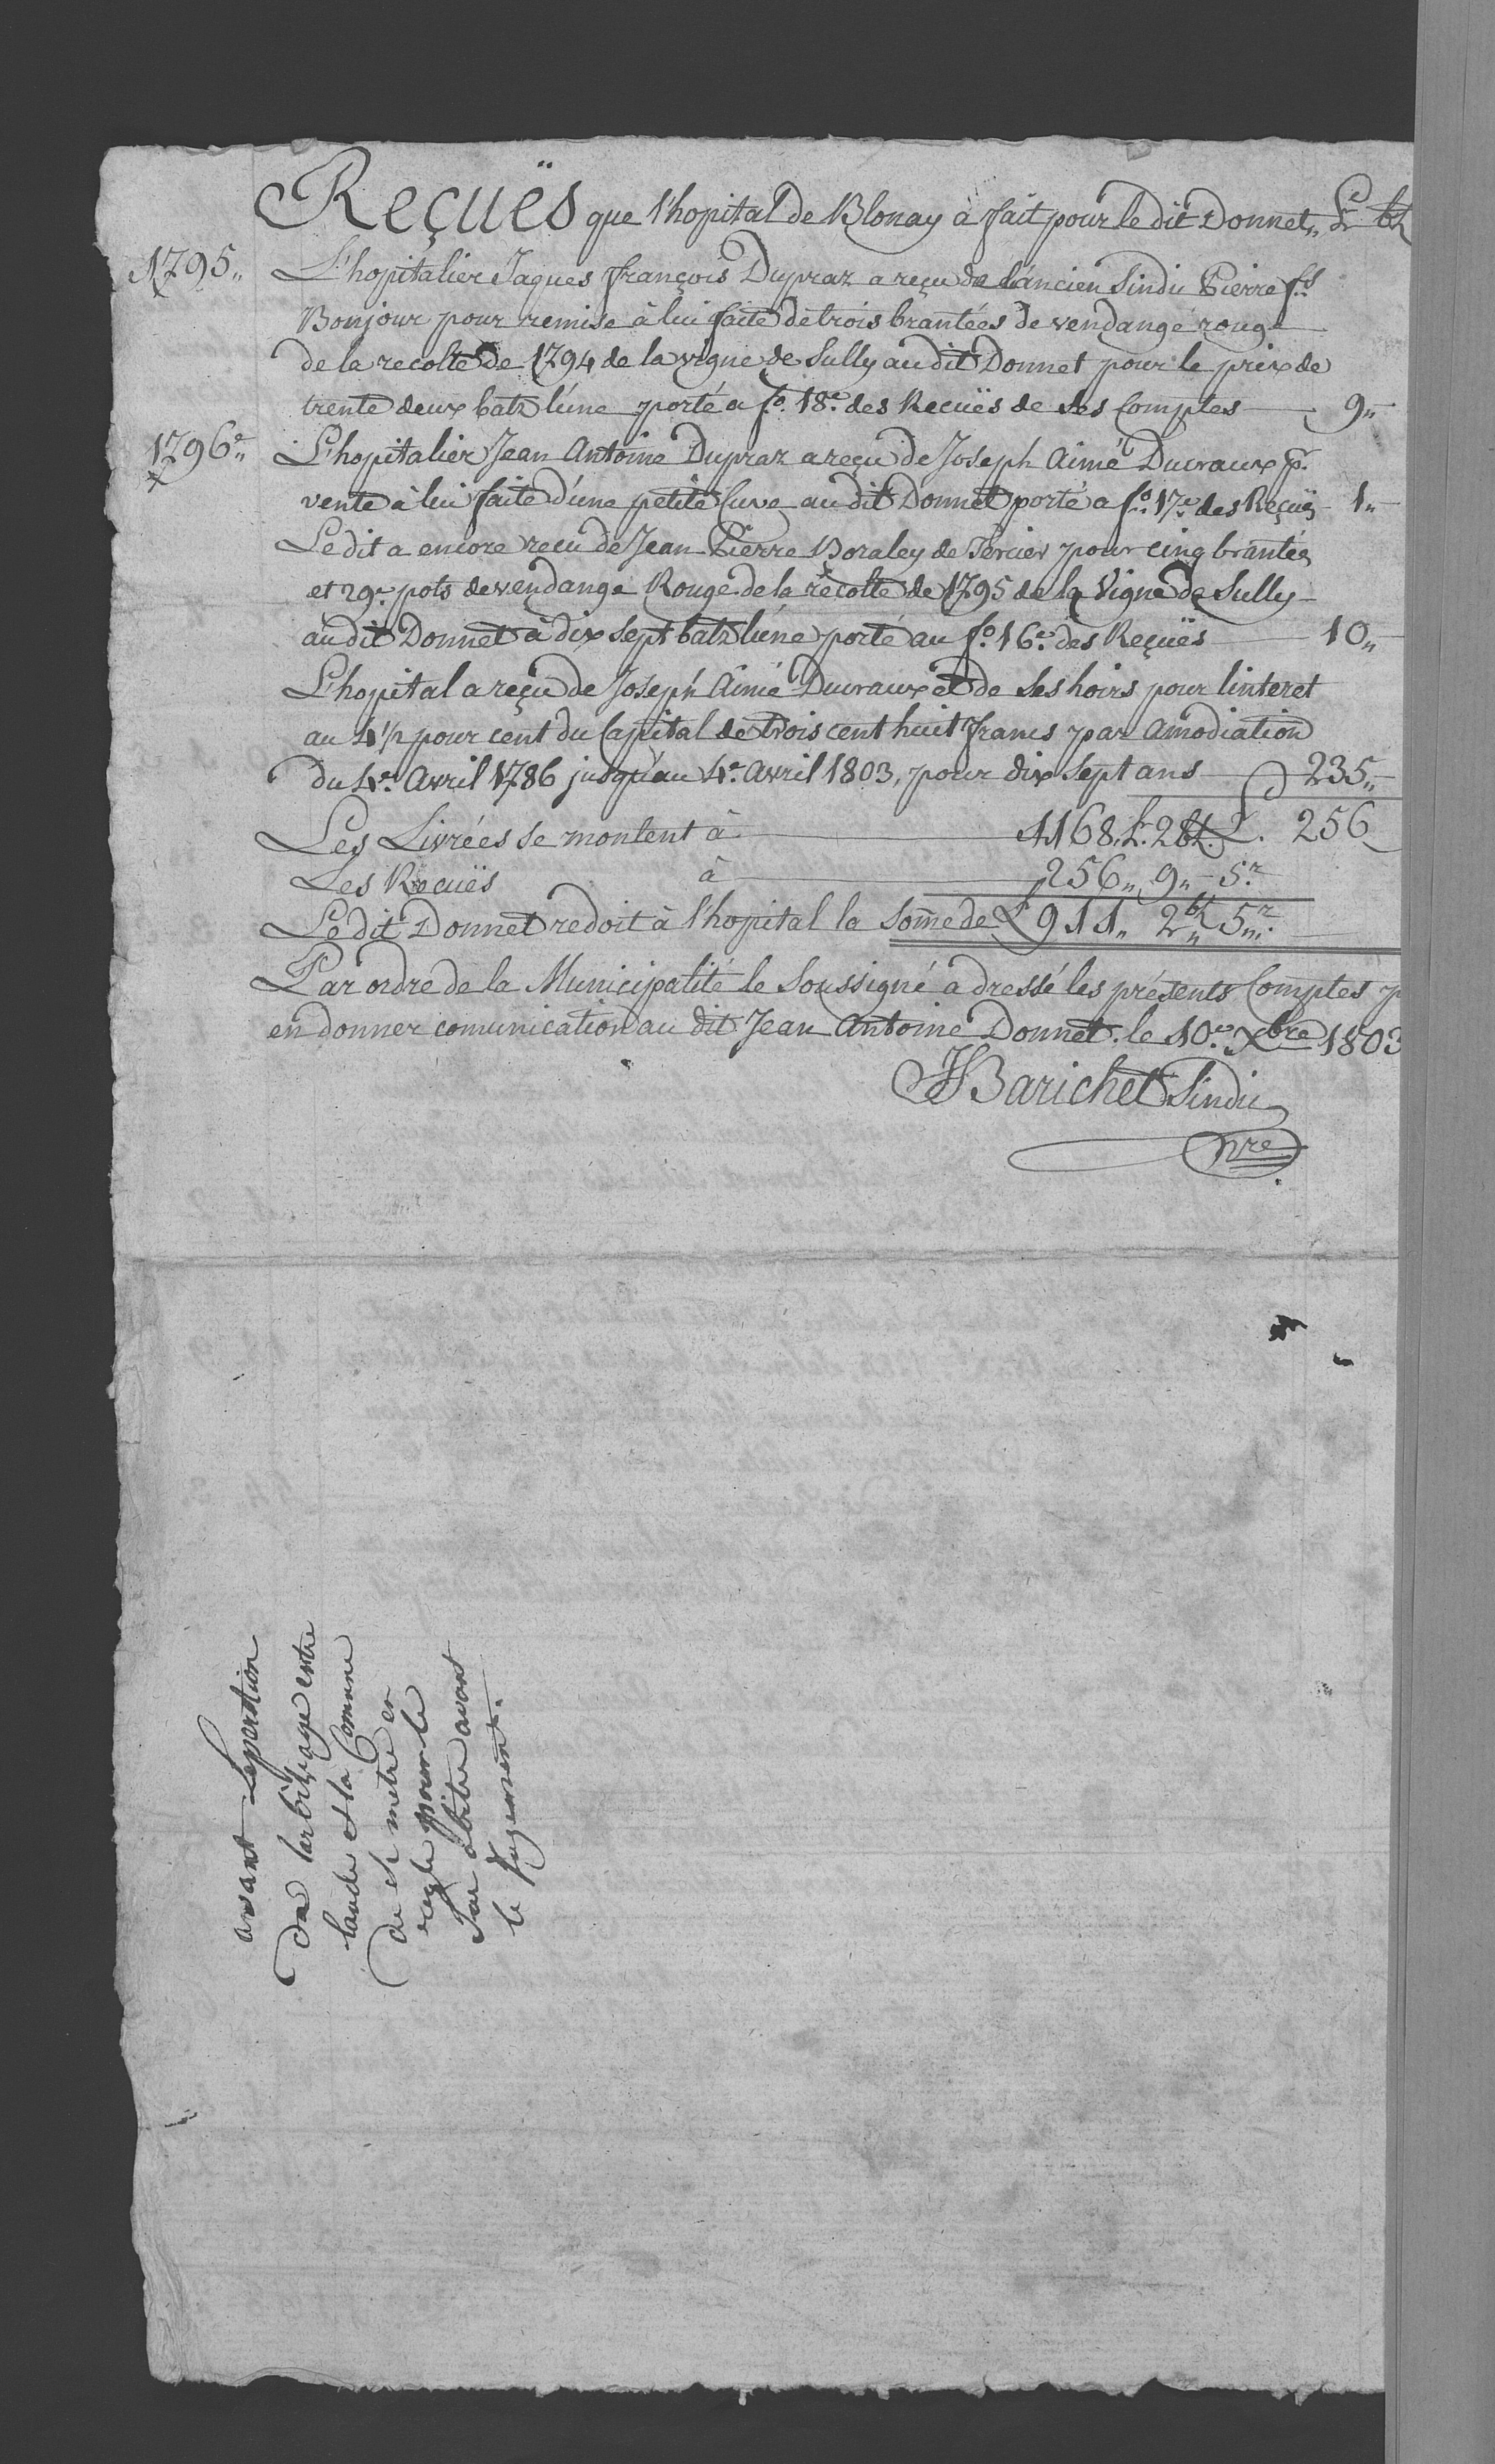 Reçuës que l'hopital de Blonay à fait pour le dit Donnet,, £ btz
1795,, L'hopitalier Jaques françois Dupraz a reçu de l'ancien Sindic Pierre fs
Bonjour pour remise à lui faite de trois brantées de vendange rouge
de la recolte de 1794 de la vigne de Sully au dit Donnet pour le prix de
trente deux batz l'une porté a fo. 18e. des Recuës de ses Comptes 9,,
1796e,, L'hopitalier Jean Antoine Dupraz a reçu de Joseph Aimé Ducraux p.
vente à lui faite d'une petite Cuve au dit Donnet porté a fo. 17e. des Reçuës 1,,
Le dit a encore reçu de Jean Pierre Boraley de Tercier pour cinq brantées
et 29e. pots de vendange Rouge de la récolte de 1795 de la Vigne de Sully
au dit Donnet à dix sept batz l'une porté au fo. 16e. des Reçuës 10,,
L'hopital a reçu de Joseph Aimé Ducraux et de ses hoirs pour linteret
au 4½ pour cent du Capital de trois cent huit francs par Amodiation
du 4e. Avril 1786 jusqu'au 4e. Avril 1803, pour dix sept ans 235,,
Les Livrées se montent à 1168 £. 2 bt. £. 256
Les Recuës à 256,, 9,, 5r
Le dit Donnet redoit à l'hopital la some de £ 911,, 2 bz,, 5r,,
Par ordre de la Municipalité le Soussigné a dressé les présents Comptes p
en donner comunication au dit Jean Antoine Donnet. le 10e. Xbre 1803
Barichet Sindic
nre
avant
da larbitrage entre
laude et la Comune
de se metre en
regle pour le
avant
le Jugement.